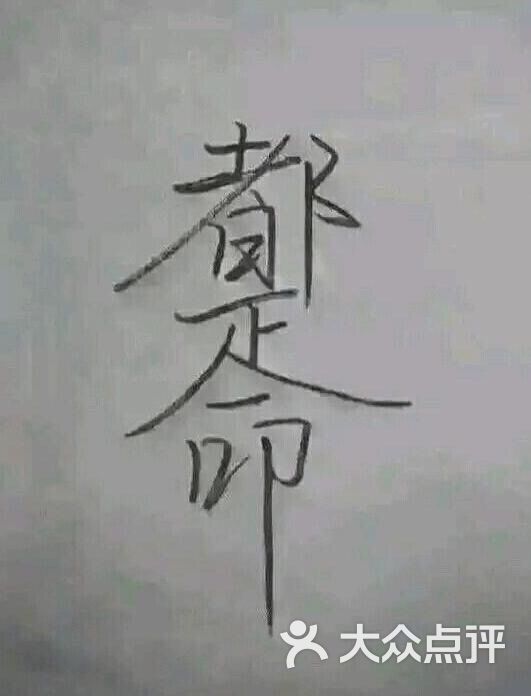 都是命
大众点评